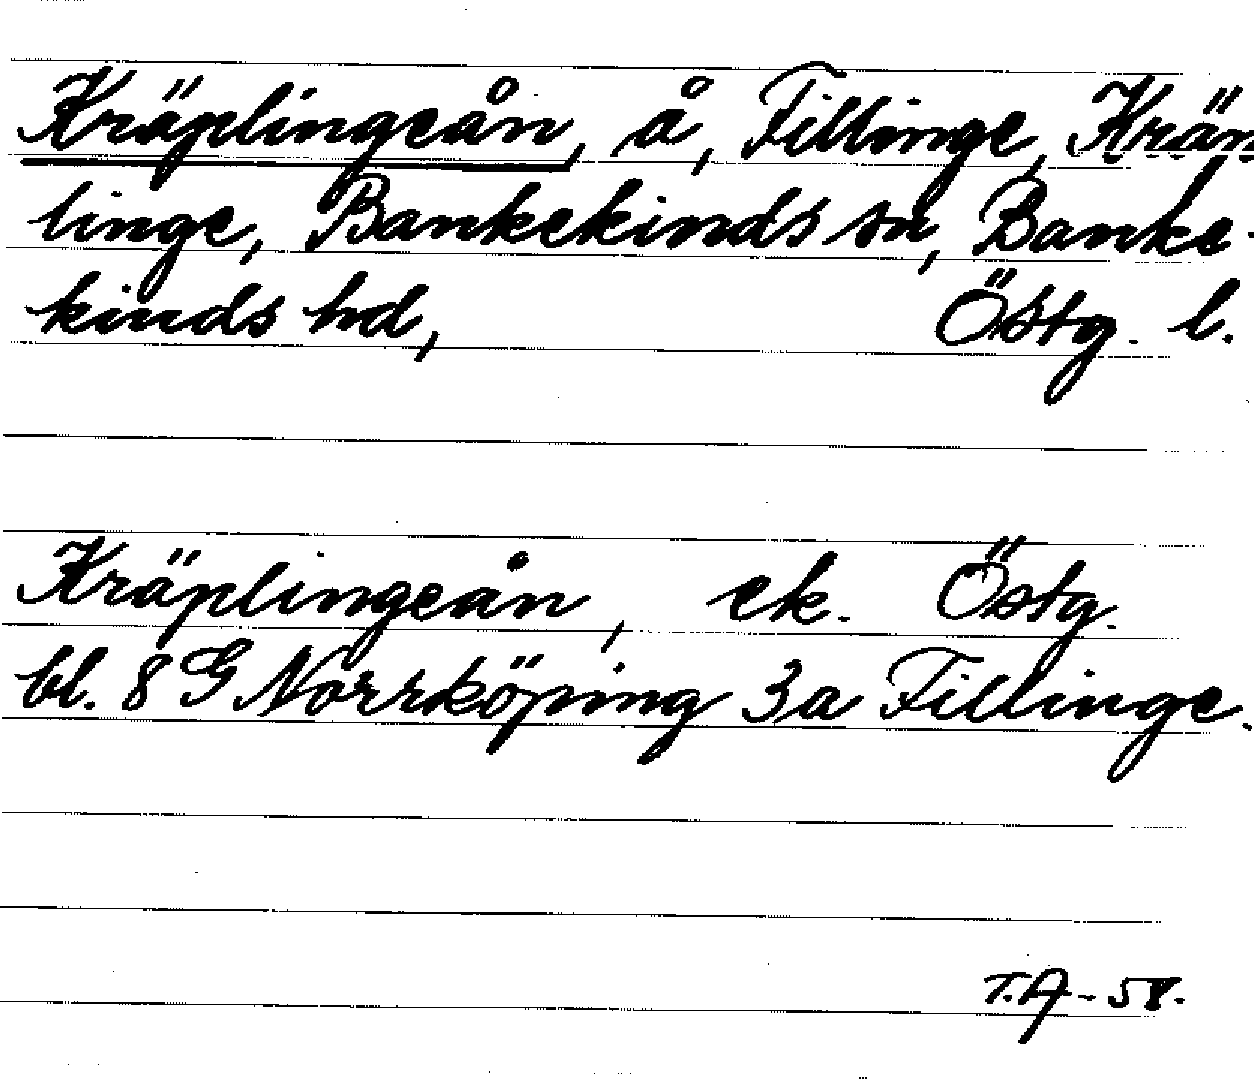 Kräplingeån, å, Fillinge, Kräp
linge, Bankekinds sn, Banke-
kinds hd, Östg. l.
Kräplingeån, ek. Östg.
bl. 8 G Norrköping 3a Fillinge.
T.A-58.